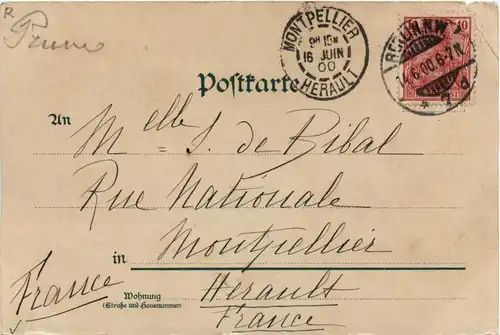 R
MONTPELLIER
9H 15M
16 JUIN
00
HERAULT
BERLIN N.W.
6.00.6-7N
10
Postkarte
An
Melle S. de Ribal
Rue Nationale
in Montpellier
France
Wohnung
(Straße und Hausnummer)
Herault
France